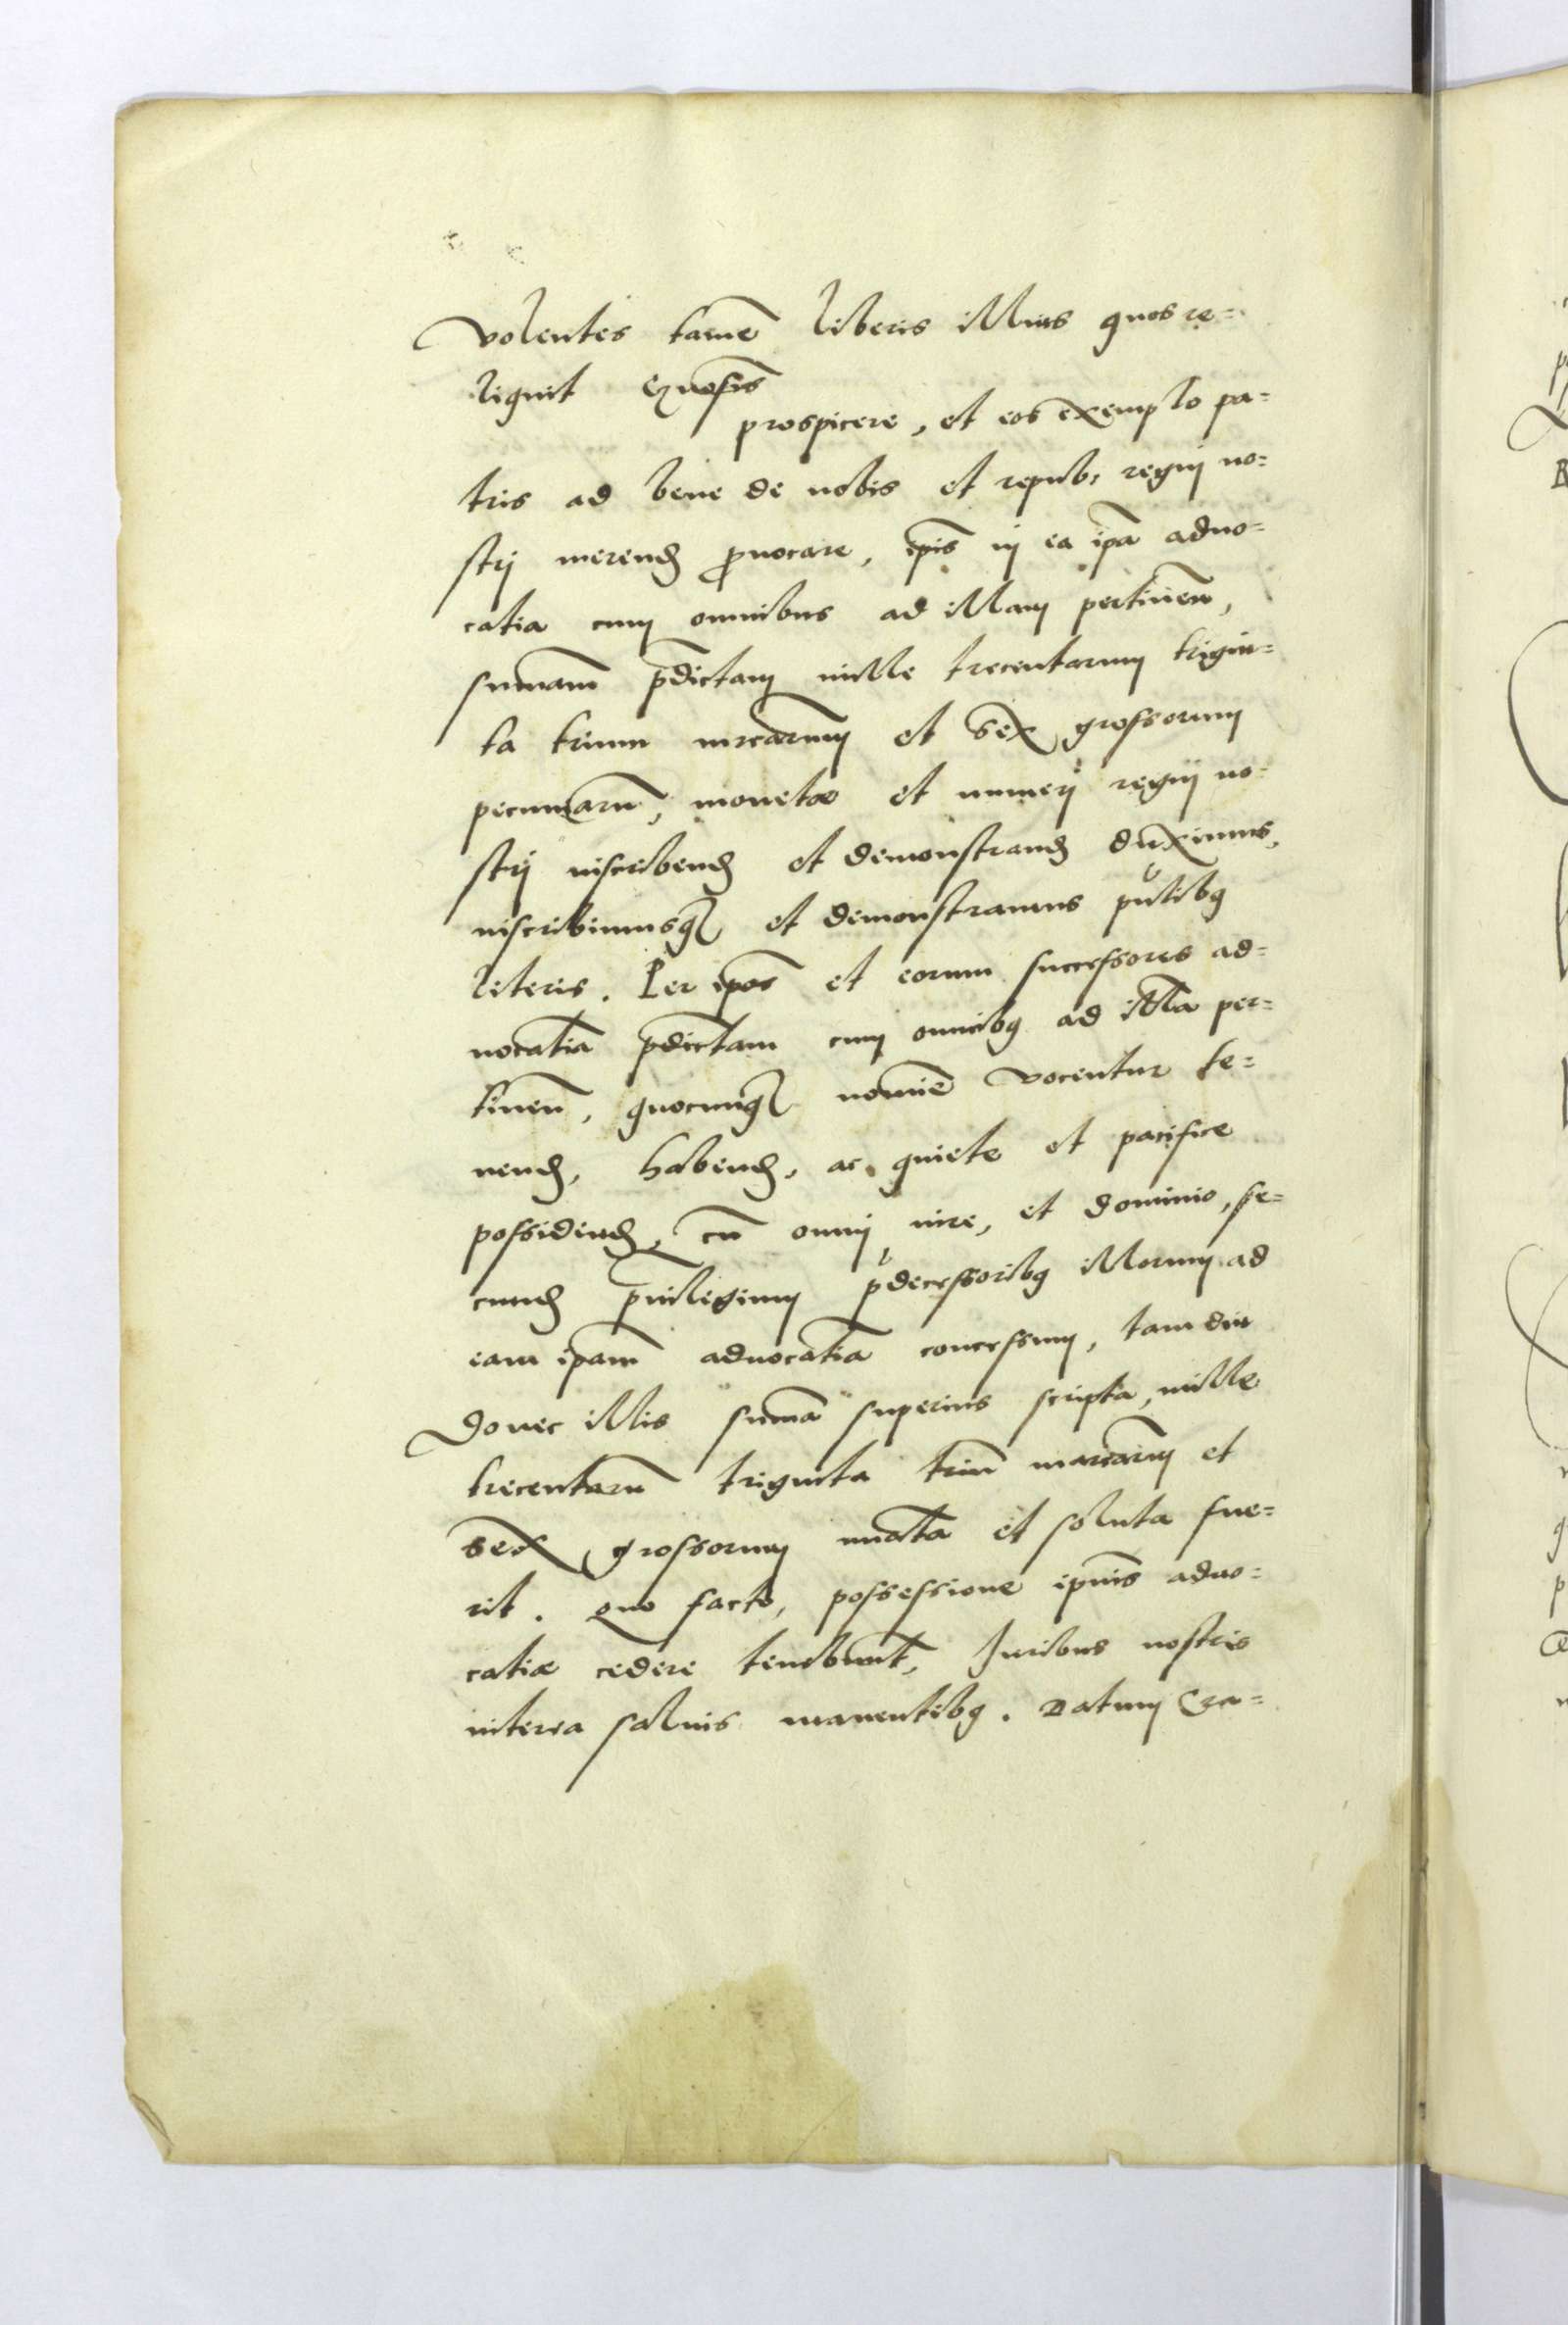 volentes tamē liberis illius quos re=
liquit
prospicere, et eos exemplo pa=
tris ad bene de nobis et repub: regni no=
stri merend ꝓuocare, ip̄is in ea ip̄a aduo=
catia cum omnibus ad illam pertinen̄,
sum̄am p̄dictam mille trecentarum trigin=
ta trium mrcarum et sex grossorum
pecuniarū, monetæ et numeri regni no=
stri inscribend et demonstrand duximus,
inscribimusq et demonstramus pn̄tibꝰ
literis. Per ip̄os et eorum successores ad=
uocatiā p̄dictam cum omnibꝰ ad illā per=
tinen̄, quocunq nomīe vocentur te=
nend, habend, ac quiete et pacifice
possidend, cū omni iure, et dominio, se=
cund priuilegium p̄decessoribꝰ illorum ad
eam ip̄am aduocatiā concessum, tam diu
donec illis sum̄a superius scripta, mille
trecentarū triginta triū marcarum et
sex grossorum nūata et soluta fue=
rit. Quo facto, possessione ip̄ius aduo=
catiæ cedere tenebunt̄, Iuribus nostris
interea saluis manentibꝰ. Datum Cra=